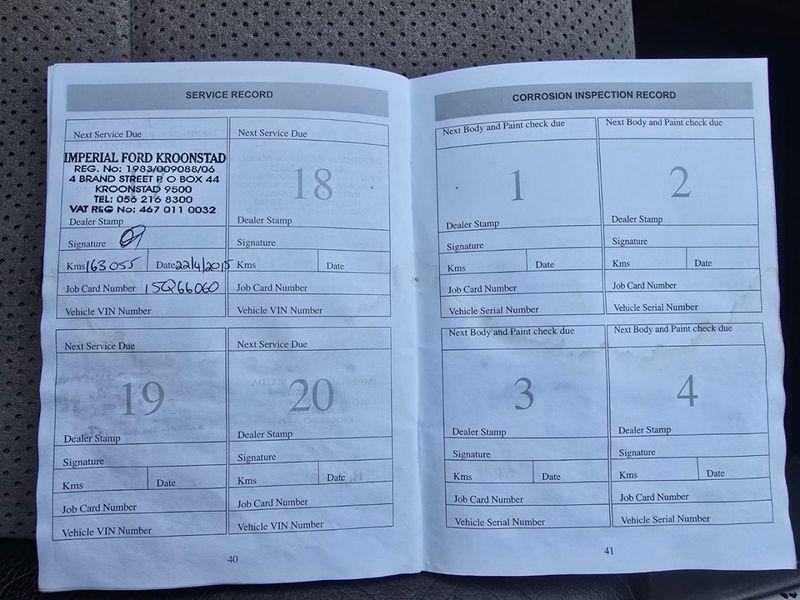 SERVICE RECORD
Next Service Due
IMPERIAL FORD KROONSTAD
REG. No: 1983/009088/06
4 BRAND STREET P O BOX 44
KROONSTAD 9500
TEL: 056 216 8300
VAT REG No: 467 011 0032
Dealer Stamp
Signature
Kms 163055 Date 22/4/2015
Job Card Number 15Q66060
Vehicle VIN Number
Next Service Due
18
Dealer Stamp
Signature
Kms Date
Job Card Number
Vehicle VIN Number
Next Service Due
19
Dealer Stamp
Signature
Kms Date
Job Card Number
Vehicle VIN Number
Next Service Due
20
Dealer Stamp
Signature
Kms Date
Job Card Number
Vehicle VIN Number
40
CORROSION INSPECTION RECORD
Next Body and Paint check due
1
Dealer Stamp
Signature
Kms Date
Job Card Number
Vehicle Serial Number
Next Body and Paint check due
2
Dealer Stamp
Signature
Kms Date
Job Card Number
Vehicle Serial Number
Next Body and Paint check due
3
Dealer Stamp
Signature
Kms Date
Job Card Number
Vehicle Serial Number
Next Body and Paint check due
4
Dealer Stamp
Signature
Kms Date
Job Card Number
Vehicle Serial Number
41